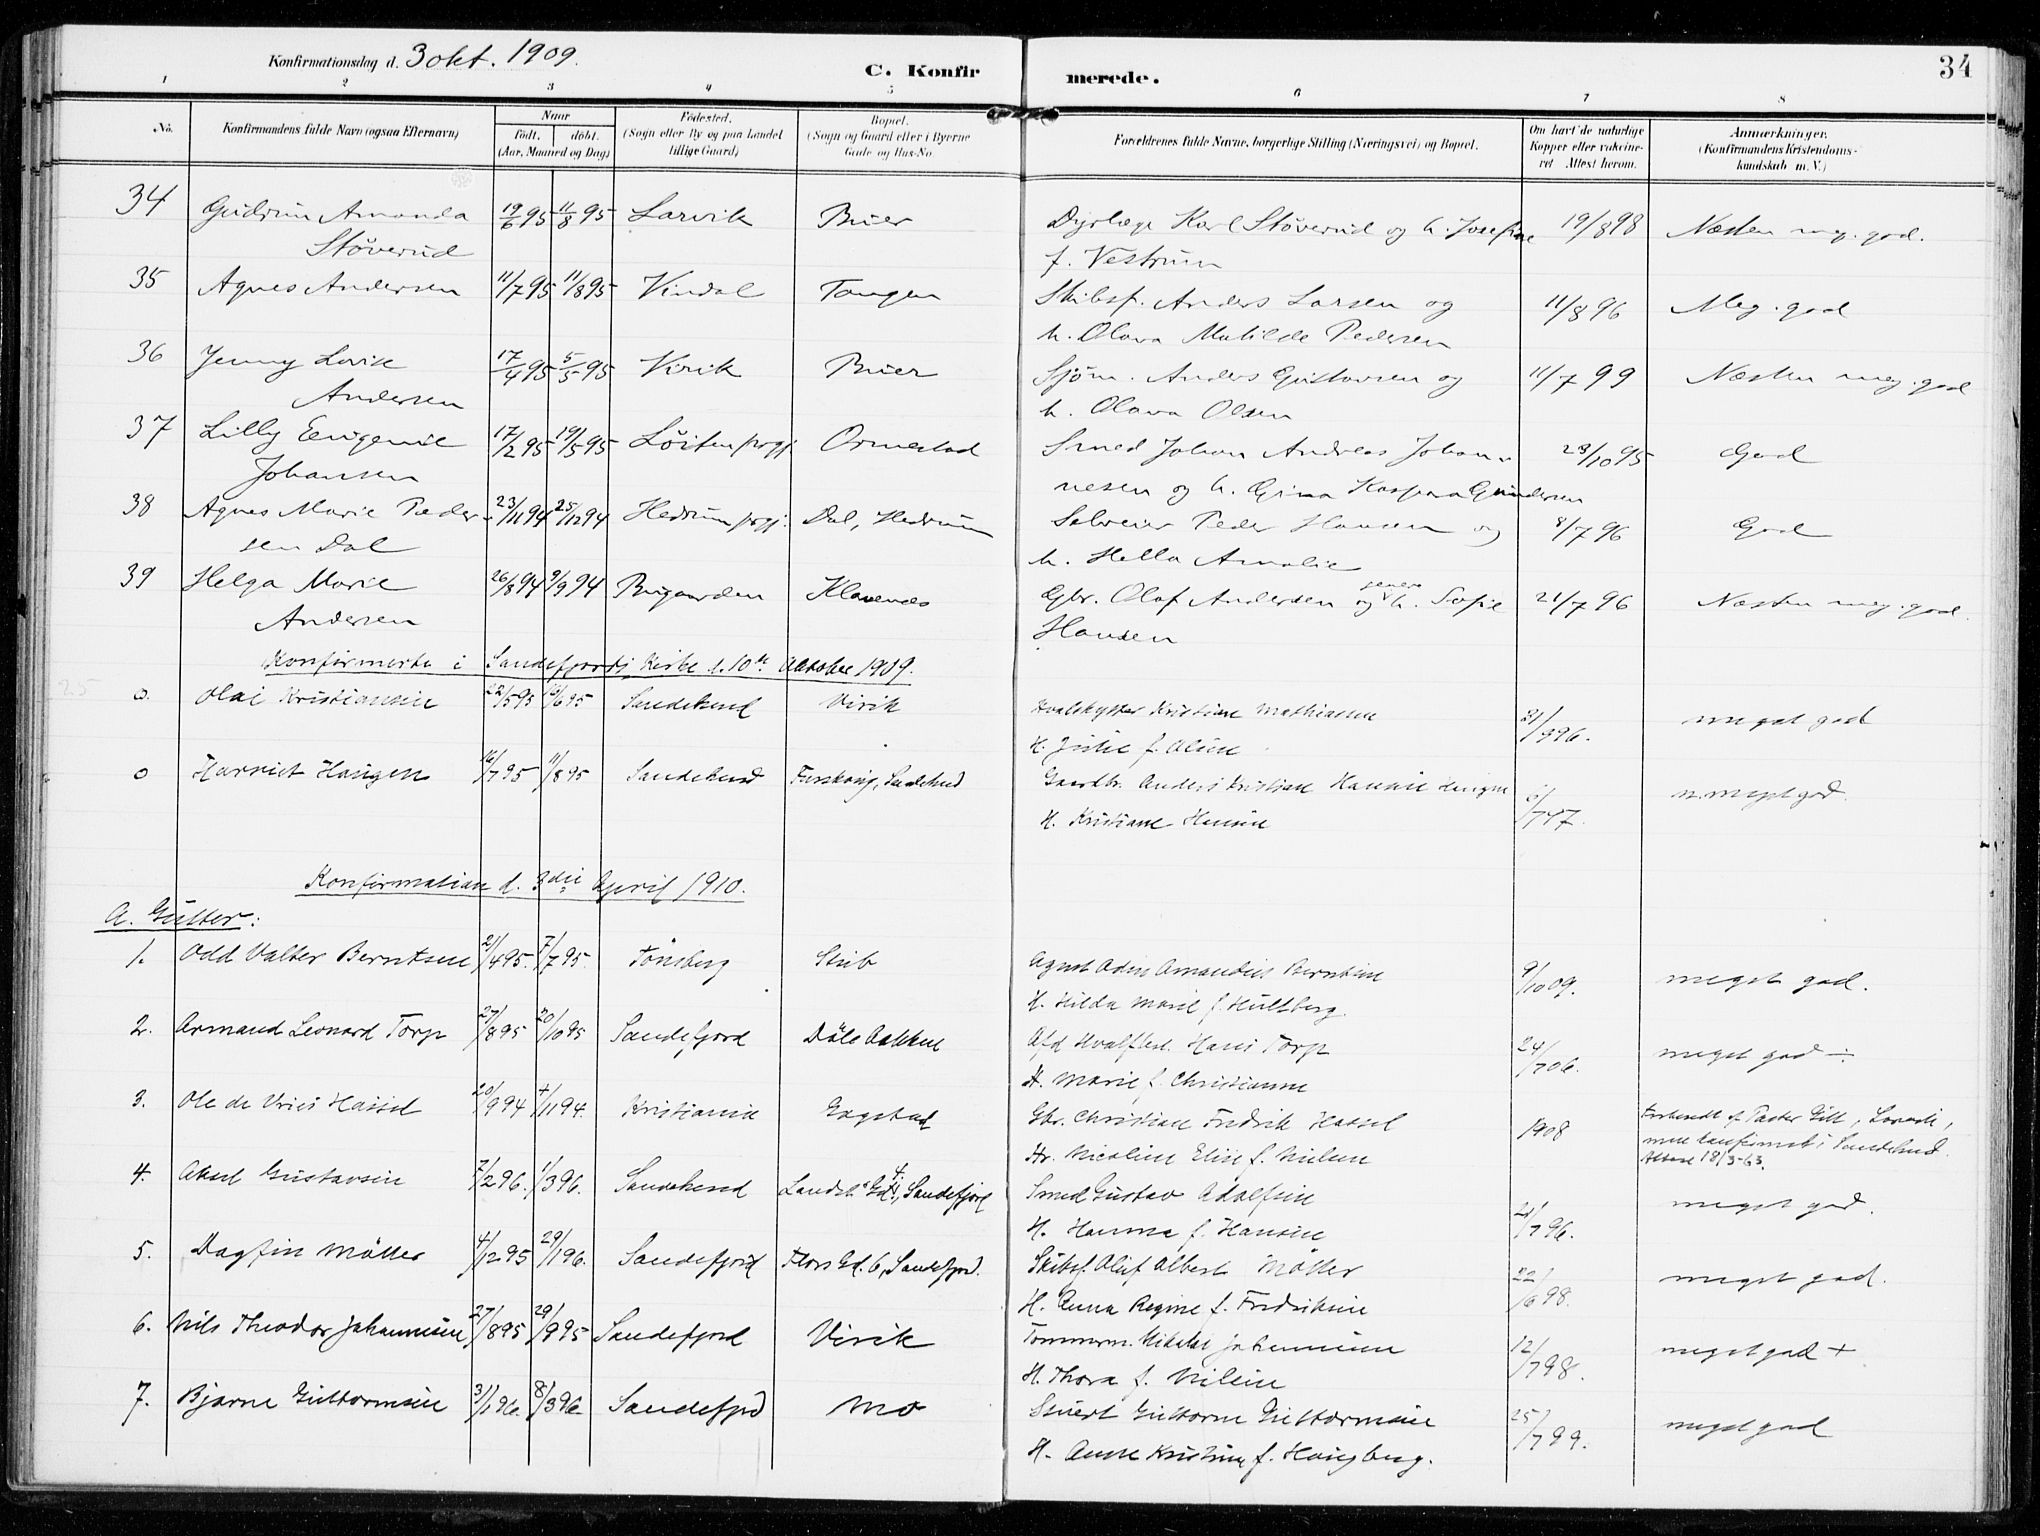 Konfirmationsdag d. 3 okt. 1909.
C. Konfirmerede.
34
1 2 3 4 5 6 7 8
No.
Konfirmandens fulde Navn (ogsaa Efternavn)
Naar
født. døbt.
(Aar, Maaned og Dag)
Fødested.
(Sogn eller By og paa Landet
tillige Gaard)
Bopæl.
(Sogn og Gaard eller i Byerne
Gade og Hus-No.
Forældrenes fulde Navne, borgerlige Stilling (Næringsvei) og Bopæl.
Om havt de naturlige
Kopper eller vaccine-
ret Attest herom.
Anmærkninger.
(Konfirmandens Kristendoms-
kundskab m. V.)
34 Gudrun Amanda 19/6 95 11/8 95 Larvik Buer Dyrlæge Karl Støverud og h. Josefine 19/8 98 Næsten meg. god.
Støverud f. Vestrum
35 Agnes Andersen 11/7 95 11/8 95 Vindal Tangen Skibsf. Anders Larsen og 11/8 96 Meg. god
h. Olava Matilde Pedersen
36 Jenny Lovise 17/4 95 5/5 95 Virik Buer Sjøm. Anders Gustavsen og 11/7 99 Næsten meg. god
Andersen h. Olava Olsen
37 Lilly Eugenie 17/2 95 19/5 95 Løiten prgj. Ormestad Smed Johan Andreas Johan- 23/10 95 God
Johansen nesen og h. Gina Kaspara Gundersen
38 Agnes Marie Peder- 23/11 94 25/12 94 Hedrum prgj. Dal, Hedrum Selveier Peder Hansen og 8/7 96 God
sen Dal h. Hella Amalie
39 Helga Marie 26/8 94 9/9 94 Bugaarden Klavenæs Gbr. Olaf Andersen og h. Sofie 21/7 96 Næsten meg. god.
Andersen Hansen
Konfirmerte i Sandefjords Kirke d. 10de Oktober 1909.
25
o. Olai Kristiansen 22/5 95 /6 95 Sandeherred Virik Hvalskytter Kristian Mathiasen 21/ 96. meget god
H. Julie f. Olsen
o Harriet Haugen 16/7 95 11/8 95 Sandeherred Furskovig, Sandeherred Gaardbr. Anders Kristian Hansen Haugen 6/7 47. n. meget god.
H. Kristiane Hansen
Konfirmation d. 3die April 1910.
A. Gutter:
1. Odd Valter Berntsen 21/4 95. 7/7 95. Tönsberg Skib Agent Odin Amandus Berntsen 9/10 09. meget god.
H. Hilda Marie f. Hultberg.
2. Armand Leonard Torp 27/8 95 20/10 95 Sandefjord Döle Bakken Afd Hvalfbest. Hans Torp 24/7 06. meget god ÷
H. Marie f. Christiansen
3. Ole de Vries Hassel 20/9 94 4/11 94. Kristiania Gogstad Gbr. Christian Fredrik Hassel 1908
Hr. Nicoline Elise f. Nielsen
Forberedt af Pastor Gill, Larvik,
men konfirmert i Sandeherred.
Attest 18/3-63.
4. Aksel Gustavsen 7/2 96. 1/3 96. Sandeherred Landst. Gd. 4, Sandefjord Smed Gustav Adolfsen 21/7 96. meget god.
H. Hanna f. Hansen
5. Dagfin Möller 4/12 95 29/1 96. Sandefjord Thors Gd. 6, Sandefjord. Skibsf. Oluf Albert Möller 22/6 98. meget god.
H. Anna Regine f. Fredriksen
6. Nils Theodor Johannesen 27/8 95 29/9 95 Sandefjord Virik Tømmerm. Nikolai Johannesen 12/7 98. meget god +
H. Thora f. Nilsen
7. Bjarne Guttormsen 3/1 96. 8/3 96. Sandefjord Mo Stuert Guttorm Guttormsen 25/7 99. meget god
H. Anne Kristine f. Haugberg.